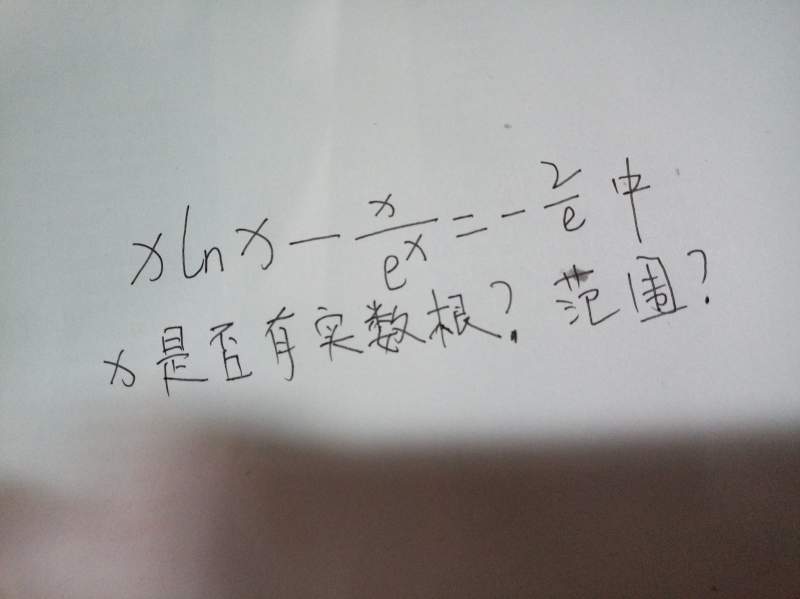 x ln x - x/e^x = - 2/e 中
x是否有实数根？范围？